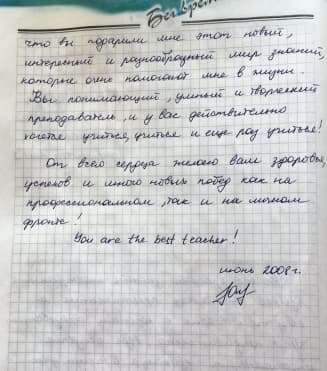 Бег врем
что вы подарили мне этот новый,
интересный и разнообразный мир знаний,
которые очень помогают мне в жизни.
Вы понимающий, умный и творческий
преподаватель, и у вас действительно
хочется учиться, учиться и ещё раз учиться!
От всего сердца желаю вам здоровья,
успехов и много новых побед как на
профессиональном, так и на личном
фронте!
You are the best teacher!
июнь 2008 г.